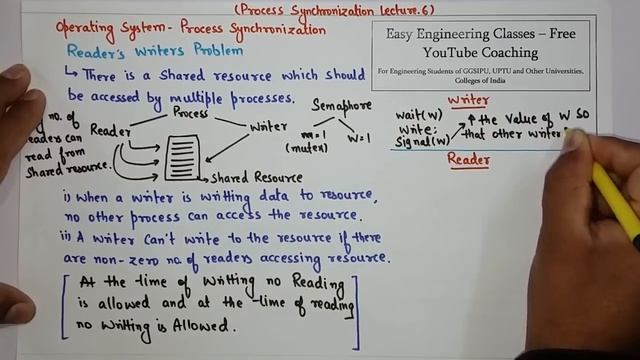 (Process Synchronization Lecture.6)
Operating System- Process Synchronization
Reader's Writers Problem
Easy Engineering Classes – Free
YouTube Coaching
For Engineering Students of GGSIPU, UPTU and Other Universities,
Colleges of India
↳ There is a shared resource which should
be accessed by multiple processes.
Process
Semaphore
no. of
Reader
Writer
m=1
(mutex)
w=1
can
read from
shared resource.
Shared Resource
Writer
wait(w)
Write;
Signal(w)
↑ the Value of W so
that other writer
Reader
i) When a writer is writting data to resource,
no other process can access the resource.
ii) A writer can't write to the resource if there
are non-zero no. of readers accessing resource.
At the time of Writting no Reading
is allowed and at the time of reading
no writting is Allowed.